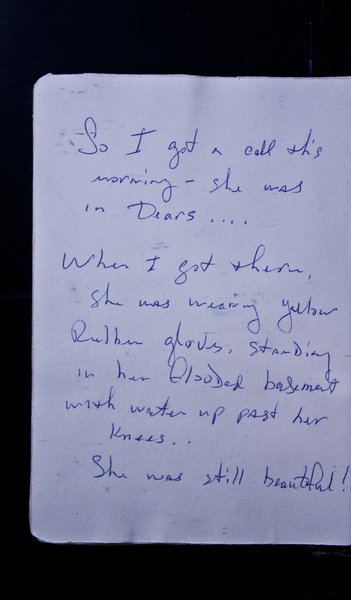 So I got a call this
morning - she was
in Tears ....
When I got there,
she was wearing yellow
Rubber gloves, standing
in her flooded basement
with water up past her
knees..
She was still beautiful!